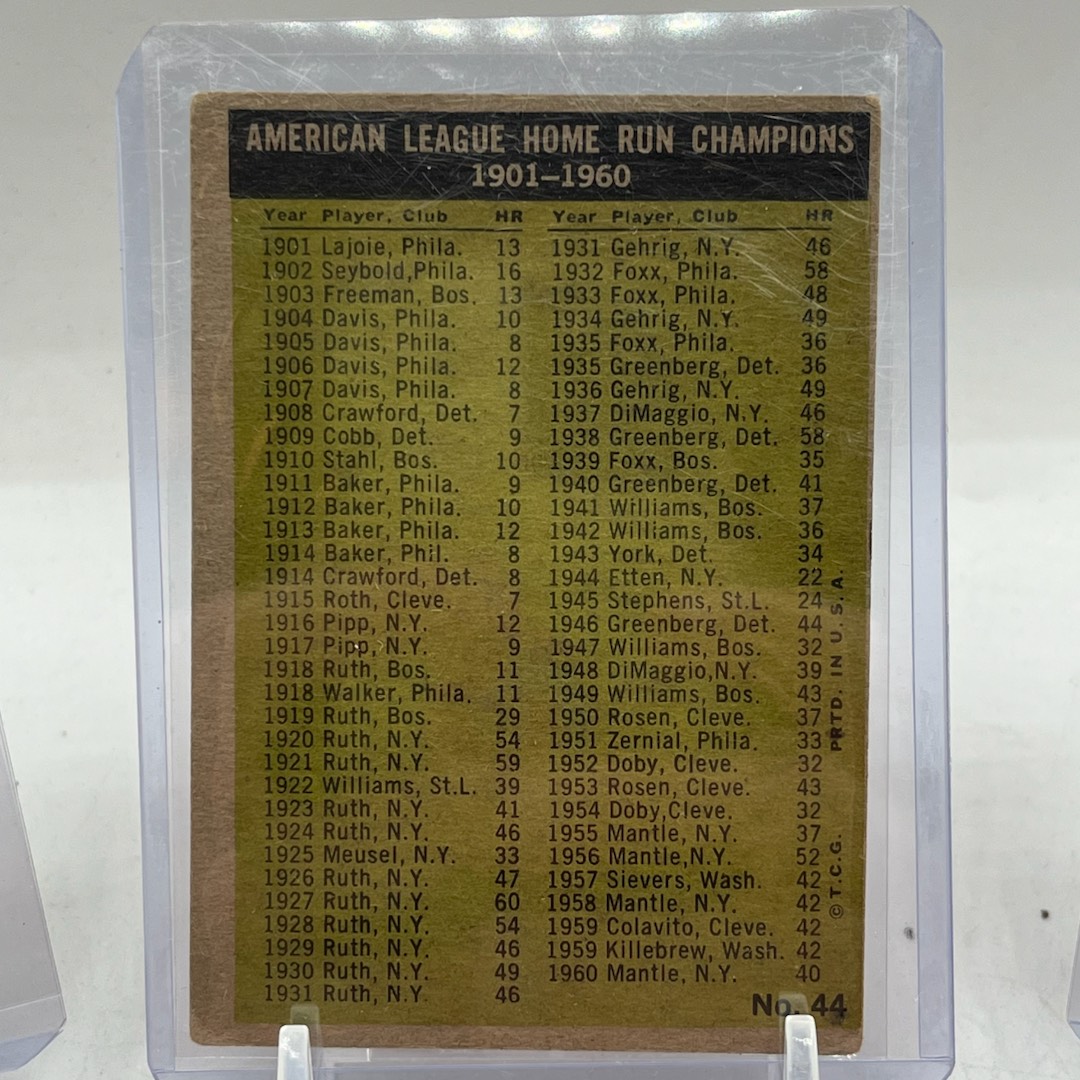 AMERICAN LEAGUE HOME RUN CHAMPIONS
1901–1960
Year Player, Club HR
1901 Lajoie, Phila. 13
1902 Seybold,Phila. 16
1903 Freeman, Bos. 13
1904 Davis, Phila. 10
1905 Davis, Phila. 8
1906 Davis, Phila. 12
1907 Davis, Phila. 8
1908 Crawford, Det. 7
1909 Cobb, Det. 9
1910 Stahl, Bos. 10
1911 Baker, Phila. 9
1912 Baker, Phila. 10
1913 Baker, Phila. 12
1914 Baker, Phil. 8
1914 Crawford, Det. 8
1915 Roth, Cleve. 7
1916 Pipp, N.Y. 12
1917 Pipp, N.Y. 9
1918 Ruth, Bos. 11
1918 Walker, Phila. 11
1919 Ruth, Bos. 29
1920 Ruth, N.Y. 54
1921 Ruth, N.Y. 59
1922 Williams, St.L. 39
1923 Ruth, N.Y. 41
1924 Ruth, N.Y. 46
1925 Meusel, N.Y. 33
1926 Ruth, N.Y. 47
1927 Ruth, N.Y. 60
1928 Ruth, N.Y. 54
1929 Ruth, N.Y. 46
1930 Ruth, N.Y. 49
1931 Ruth, N.Y. 46
Year Player, Club HR
1931 Gehrig, N.Y. 46
1932 Foxx, Phila. 58
1933 Foxx, Phila. 48
1934 Gehrig, N.Y. 49
1935 Foxx, Phila. 36
1935 Greenberg, Det. 36
1936 Gehrig, N.Y. 49
1937 DiMaggio, N.Y. 46
1938 Greenberg, Det. 58
1939 Foxx, Bos. 35
1940 Greenberg, Det. 41
1941 Williams, Bos. 37
1942 Williams, Bos. 36
1943 York, Det. 34
1944 Etten, N.Y. 22
1945 Stephens, St.L. 24
1946 Greenberg, Det. 44
1947 Williams, Bos. 32
1948 DiMaggio,N.Y. 39
1949 Williams, Bos. 43
1950 Rosen, Cleve. 37
1951 Zernial, Phila. 33
1952 Doby, Cleve. 32
1953 Rosen, Cleve. 43
1954 Doby,Cleve. 32
1955 Mantle, N.Y. 37
1956 Mantle,N.Y. 52
1957 Sievers, Wash. 42
1958 Mantle, N.Y. 42
1959 Colavito, Cleve. 42
1959 Killebrew, Wash. 42
1960 Mantle, N.Y. 40
© T.C.G. PRTD. IN U.S.A.
No. 44